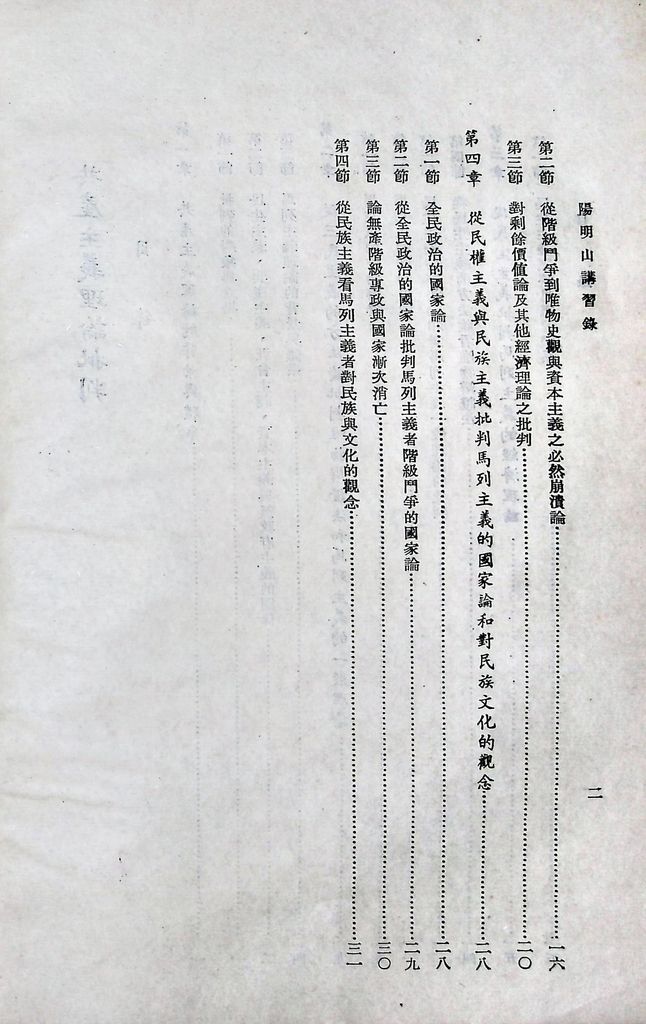 陽明山講習錄
二
第二節 從階級鬥爭到唯物史觀與資本主義之必然崩潰論……一六
第三節 對剩餘價值論及其他經濟理論之批判……二〇
第四章 從民權主義與民族主義批判馬列主義的國家論和對民族文化的觀念……二八
第一節 全民政治的國家論……二八
第二節 從全民政治的國家論批判馬列主義者階級鬥爭的國家論……二九
第三節 論無產階級專政與國家漸次消亡……三〇
第四節 從民族主義看馬列主義者對民族與文化的觀念……三一